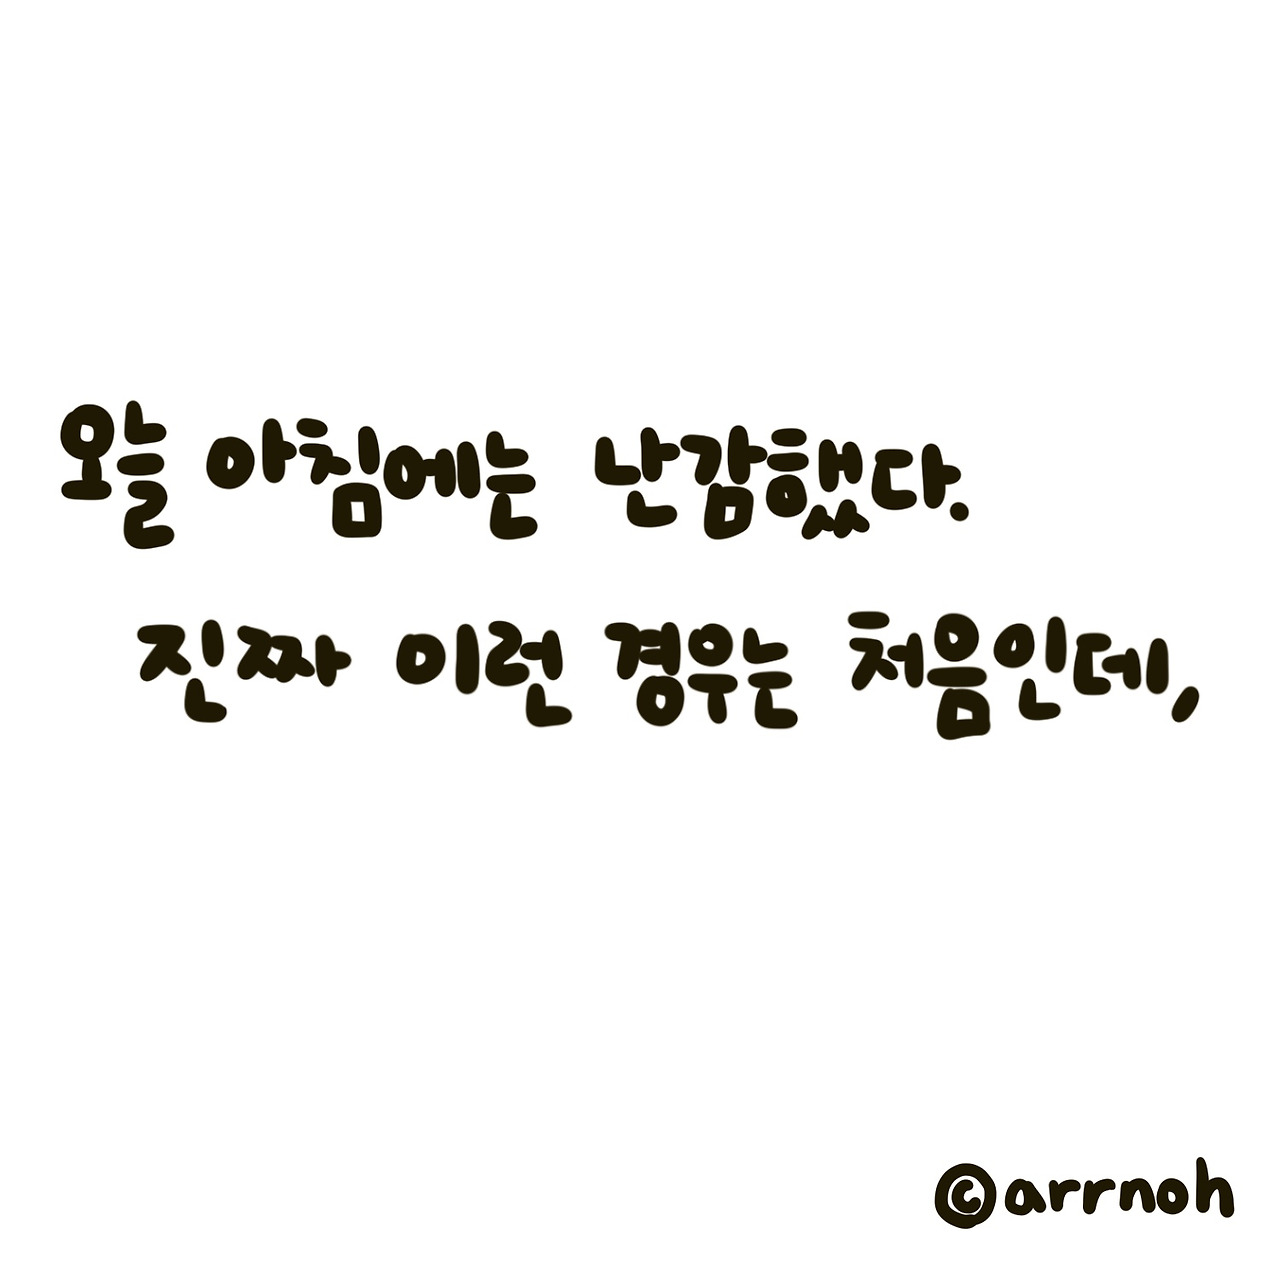 오늘 아침에는 난감했다.
진짜 이런 경우는 처음인데,
©arrnoh